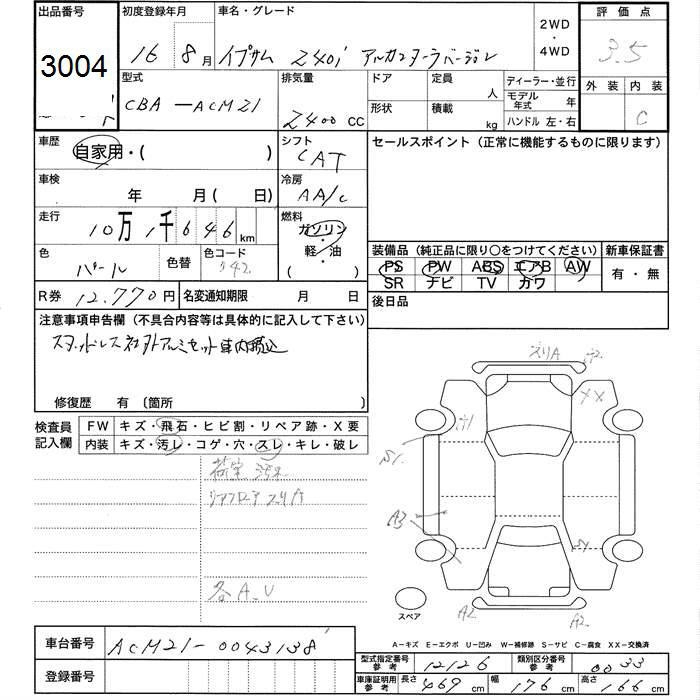 出品番号 3004
初度登録年月 16 8月
車名・グレード イプサム 240i アルカンターラバージョン
2WD・4WD
評価点 3.5
外装 内装 C
型式 CBA-ACM21
排気量 2400 CC
ドア 定員 人
形状 積載 kg
ディーラー・並行
モデル年式 年
ハンドル 左・右
車歴 自家用・( )
シフト CAT
セールスポイント (正常に機能するものに限ります)
車検 年 月( 日)
冷房 AA/C
走行 10万1千646km
燃料 ガソリン・軽・油 ( )
色 パール 色替 色コード 042
装備品 (純正品に限り○をつけてください)
新車保証書 有・無
PS PW ABS エアB AW
SR ナビ TV カワ
R券 12.770円 名変通知期限 月 日
後日品
注意事項申告欄 (不具合内容等は具体的に記入して下さい)
スタッドレス社外アルミセット車内積込
修復歴 有 (箇所 )
検査員記入欄
FW キズ・飛石・ヒビ割・リペア跡・X要
内装 キズ・汚レ・コゲ・穴・スレ・キレ・破レ
荷室汚れ
リアフロアスリ
各A.U
スリA
XX
S1
A3
A2
A2
スペア
A-キズ E-エクボ U-凹み W-補修跡 S-サビ C-腐食 XX-交換済
車台番号 ACM21-0043138
登録番号
型式指定番号参考 12126 類別区分番号参考 0033
車庫証明用参考 長さ 469cm 幅 176cm 高さ 166cm